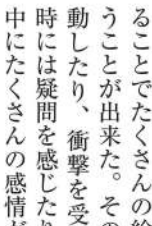 ることでたくさんの
うことが出来た。その
動したり、衝撃を受
時には疑問を感じたり
中にたくさんの感情が